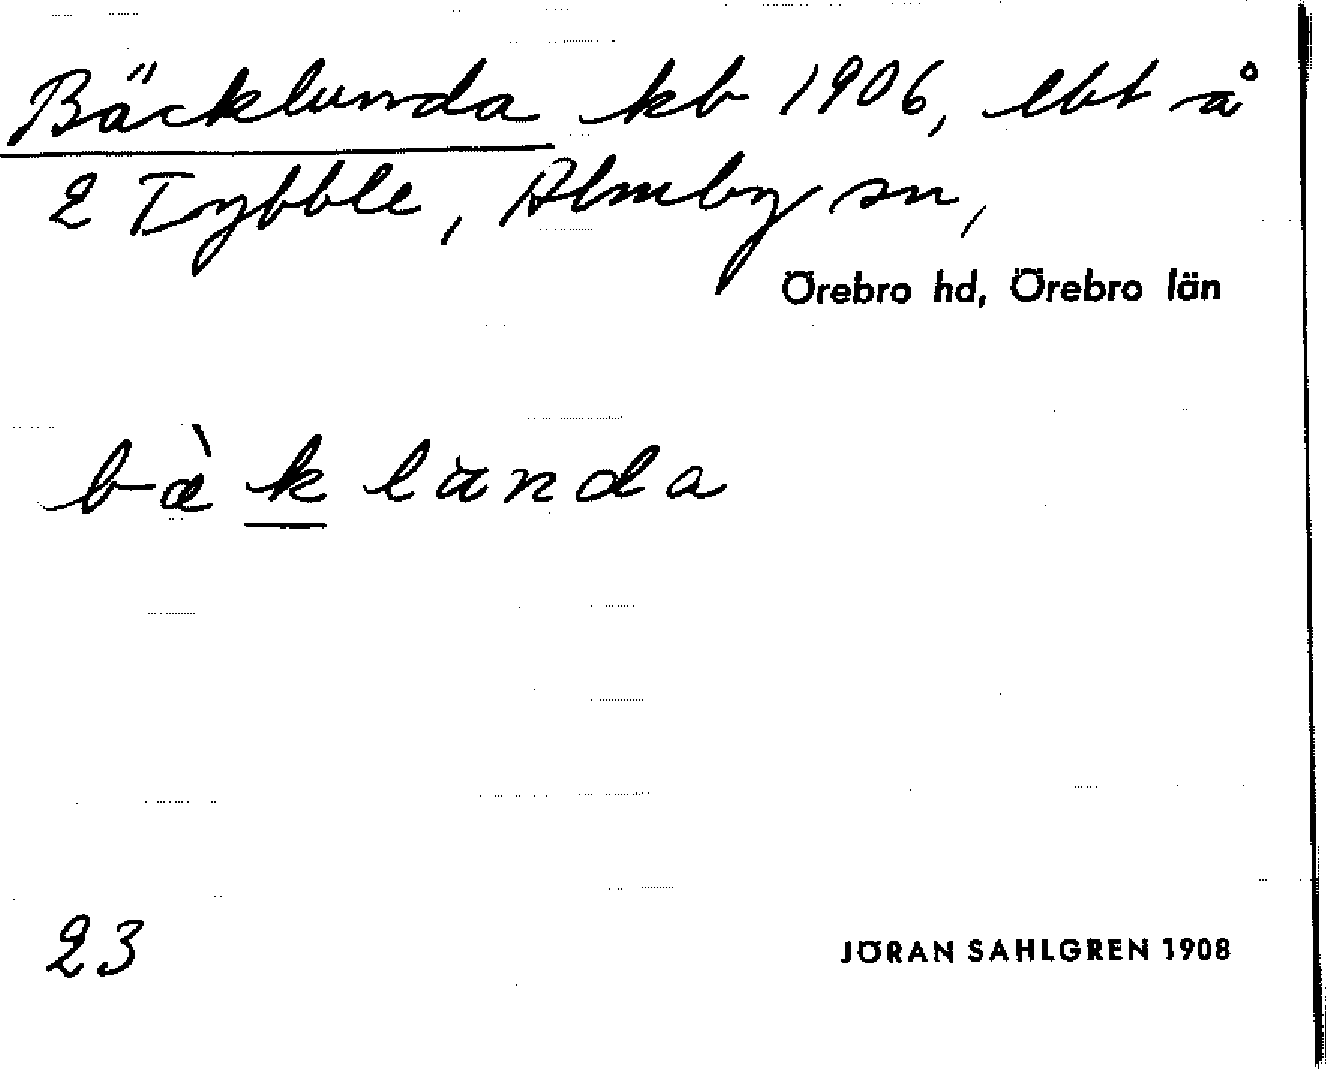 Bäcklunda kb 1906, lbt å
2 Tybble, Almby sn,
Örebro hd, Örebro län
bæ̀klanda
23
JÖRAN SAHLGREN 1908